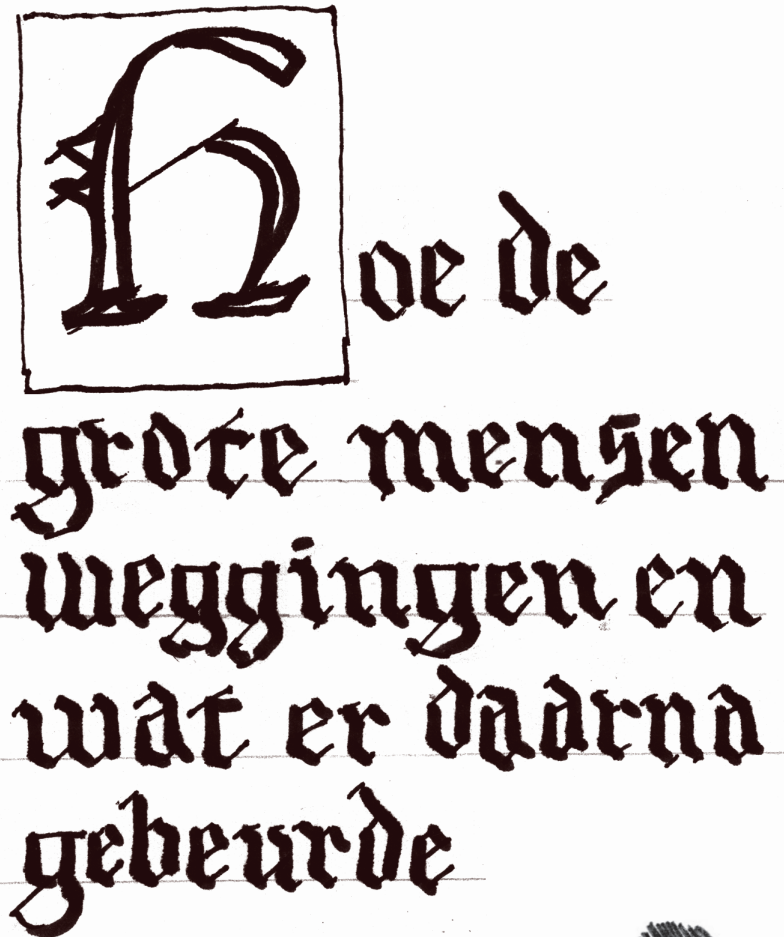 Hoe de
grote mensen
weggingen en
wat er daarna
gebeurde